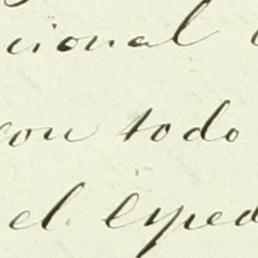 cional
con todo
el exped